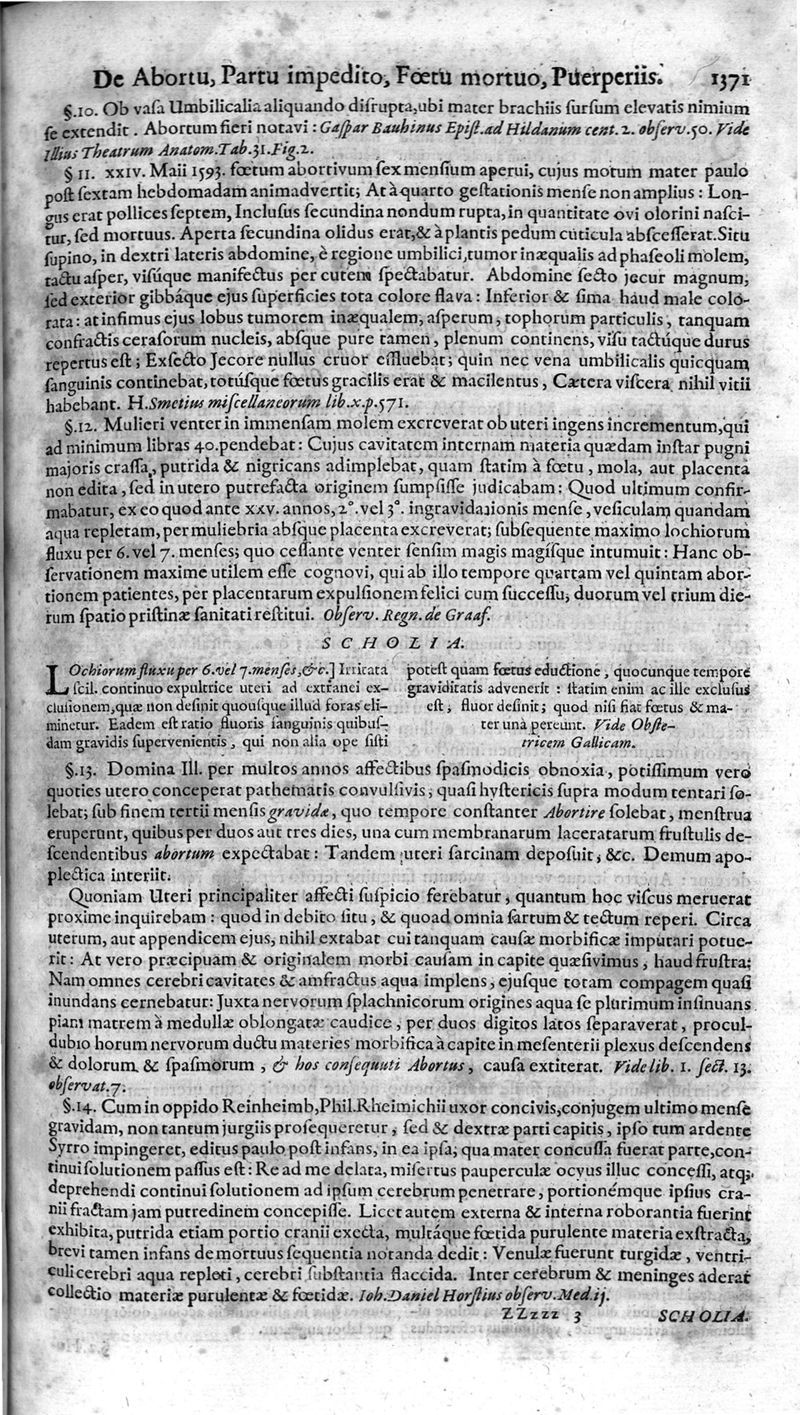 De Abortu, Partu impedito, Fœtu mortuo, Puerperiis. 1371
§.10. Ob vaſa Umbilicalia aliquando diſrupta, ubi mater brachiis ſurſum elevatis nimium
ſe extendit. Abortum fieri notavi: Gaſpar Bauhinus Epiſt. ad Hildanum cent. 2. obſerv. 50. Vide
Illius Theatrum Anatom. Tab. 31. Fig. 2.
§ 11. xxiv. Maii 1593. fœtum abortivum ſex menſium aperui, cujus motum mater paulo
poſt ſextam hebdomadam animadvertit; At à quarto geſtationis menſe non amplius: Lon-
gus erat pollices ſeptem, Incluſus ſecundina nondum rupta, in quantitate ovi olorini naſci-
tur, ſed mortuus. Aperta ſecundina olidus erat, & à plantis pedum cuticula abſceſſerat. Situ
ſupino, in dextri lateris abdomine, è regione umbilici, tumor inæqualis ad phaſeoli molem,
tactu aſper, viſúque manifeſtus per cutem ſpectabatur. Abdomine ſecto jecur magnum,
ſed exterior gibbáque ejus ſuperficies tota colore flava: Inferior & ſima haud male colo-
rata: at infimus ejus lobus tumorem inæqualem, aſperum, tophorum particulis, tanquam
confractis ceraſorum nucleis, abſque pure tamen, plenum continens, viſu tactúque durus
repertus eſt; Exſecto Jecore nullus cruor effluebat; quin nec vena umbilicalis quicquam
ſanguinis continebat, totúſque fœtus gracilis erat & macilentus, Cætera viſcera nihil vitii
habebant. H. Smetius miſcellaneorum lib. x. p. 571.
§.12. Mulieri venter in immenſam molem excreverat ob uteri ingens incrementum, qui
ad minimum libras 40. pendebat: Cujus cavitatem internam materia quædam inſtar pugni
majoris craſſa, putrida & nigricans adimplebat, quam ſtatim à fœtu, mola, aut placenta
non edita, ſed in utero putrefacta originem ſumpſiſſe judicabam: Quod ultimum confir-
mabatur, ex eo quod ante xxv. annos, 2º. vel 3º. ingravidationis menſe, veſiculam quandam
aqua repletam, per muliebria abſque placenta excreverat; ſubſequente maximo lochiorum
fluxu per 6. vel 7. menſes; quo ceſſante venter ſenſim magis magíſque intumuit: Hanc ob-
ſervationem maxime utilem eſſe cognovi, qui ab illo tempore quartam vel quintam abor-
tionem patientes, per placentarum expulſionem felici cum ſucceſſu, duorum vel trium die-
rum ſpatio priſtinæ ſanitati reſtitui. Obſerv. Regn. de Graaf.
SCHOLIA.
LOchiorum fluxu per 6. vel 7. menſes, &c.] Irritata
ſcil. continuo expultrice uteri ad extranei ex-
cluſionem, quæ non deſinit quouſque illud foras eli-
minetur. Eadem eſt ratio fluoris ſanguinis quibuſ-
dam gravidis ſupervenientis, qui non alia ope ſiſti
poteſt quam fœtus eductione, quocunque tempore
graviditatis advenerit: ſtatim enim ac ille excluſus
eſt, fluor deſinit; quod niſi fiat fœtus & ma-
ter unà pereunt. Vide Obſte-
tricem Gallicam.
§.13. Domina Ill. per multos annos affectibus ſpaſmodicis obnoxia, potiſſimum vero
quoties utero conceperat pathematis convulſivis, quaſi hyſtericis ſupra modum tentari ſo-
lebat; ſub finem tertii menſis gravidæ, quo tempore conſtanter Abortire ſolebat, menſtrua
eruperunt, quibus per duos aut tres dies, una cum membranarum laceratarum fruſtulis de-
ſcendentibus abortum expectabat: Tandem uteri ſarcinam depoſuit, &c. Demum apo-
plectica interiit.
Quoniam Uteri principaliter affecti ſuſpicio ferebatur, quantum hoc viſcus meruerat
proxime inquirebam: quod in debito ſitu, & quoad omnia ſartum & tectum reperi. Circa
uterum, aut appendicem ejus, nihil extabat cui tanquam cauſæ morbificæ imputari potue-
rit: At vero præcipuam & originalem morbi cauſam in capite quæſivimus, haud fruſtra:
Nam omnes cerebri cavitates & amfractus aqua implens, ejuſque totam compagem quaſi
inundans cernebatur: Juxta nervorum ſplachnicorum origines aqua ſe plurimum inſinuans
piam matrem à medullæ oblongatæ caudice, per duos digitos latos ſeparaverat, procul-
dubio horum nervorum ductu materies morbifica à capite in meſenterii plexus deſcendens
& dolorum & ſpaſmorum, & hos conſequuti Abortus, cauſa extiterat. Vide lib. 1. ſect. 13.
obſervat. 7.
§.14. Cum in oppido Reinheimb, Phil. Rheimichii uxor concivis, conjugem ultimo menſe
gravidam, non tantum jurgiis proſequeretur, ſed & dextræ parti capitis, ipſo tum ardente
Syrro impingeret, editus paulo poſt infans, in ea ipſa, qua mater concuſſa fuerat parte, con-
tinui ſolutionem paſſus eſt: Re ad me delata, miſertus pauperculæ ocyus illuc conceſſi, atq;
deprehendi continui ſolutionem ad ipſum cerebrum penetrare, portionémque ipſius cra-
nii fractam jam putredinem concepiſſe. Licet autem externa & interna roborantia fuerint
exhibita, putrida etiam portio cranii execta, multáque fœtida purulente materia exſtracta,
brevi tamen infans demortuus ſequentia notanda dedit: Venulæ fuerunt turgidæ, ventri-
culi cerebri aqua repleti, cerebri ſubſtantia flaccida. Inter cerebrum & meninges aderat
collectio materiæ purulentæ & fœtidæ. Ioh. Daniel Horſtius obſerv. Med. ij.
ZZzzz 3 SCHOLIA.